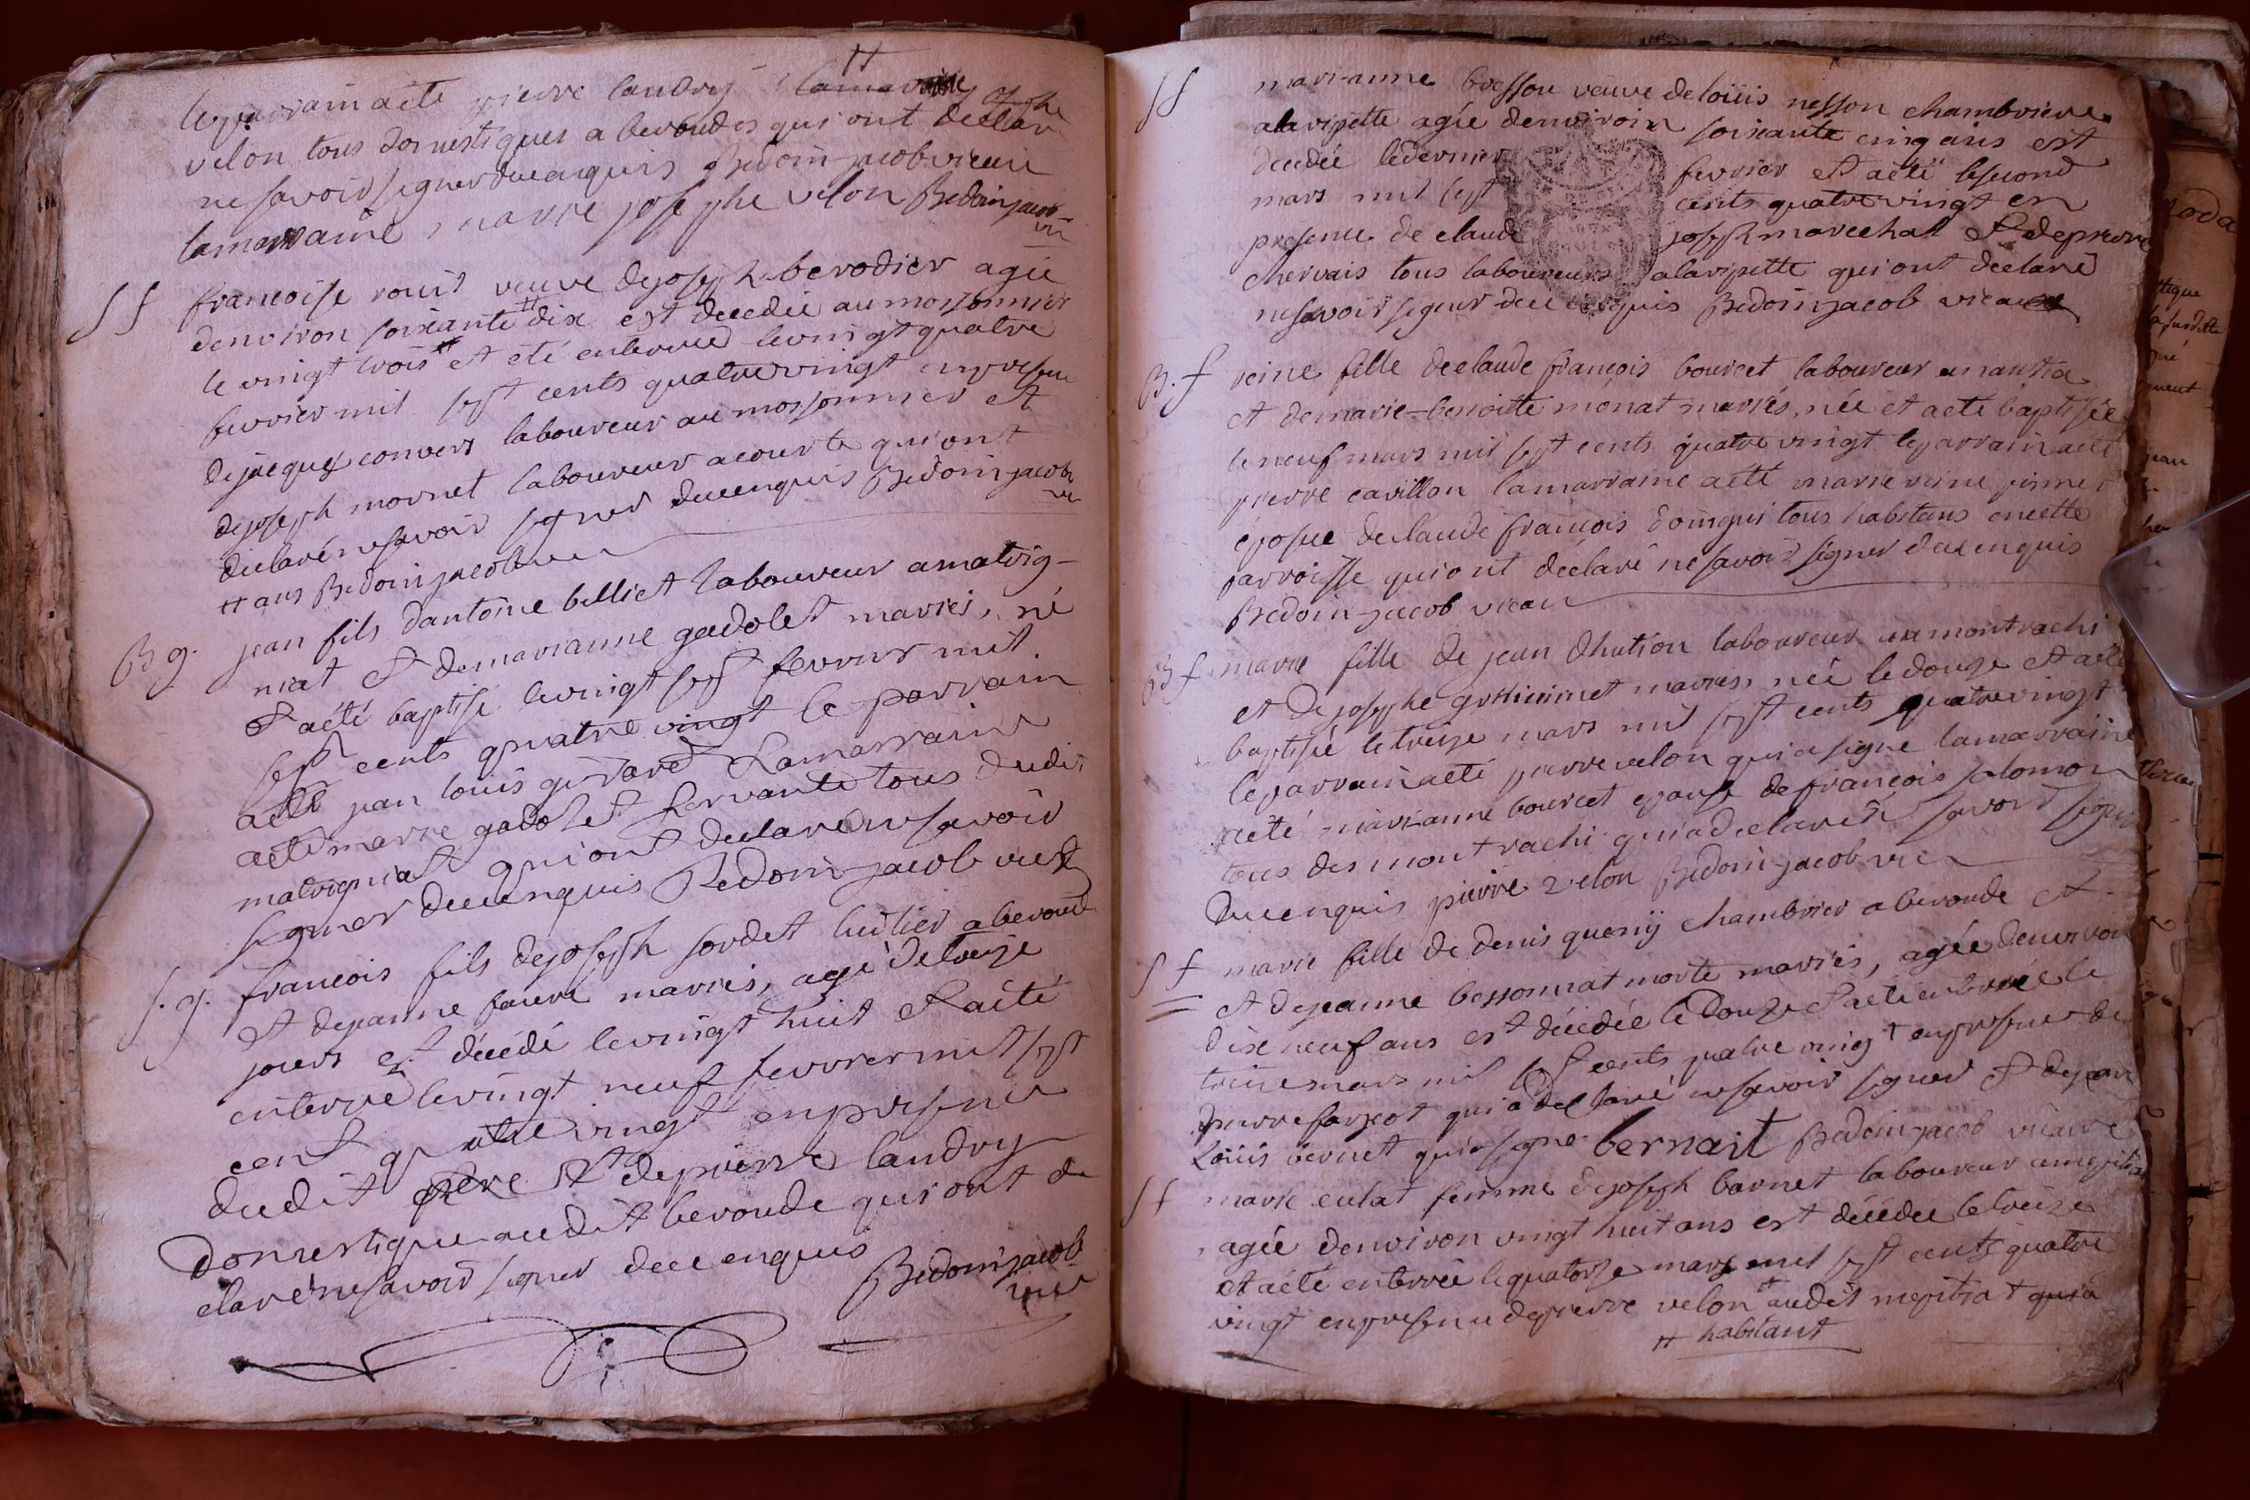 le parrain a ete pierre landry
velon tous domestiques a beroudes qui ont declar
ne savoir signer de ce enquis Bedoin jacob vicaire
la marraine marie josephe velon Bedoin jacob
vic
S f francoise veuve de joseph berodier agee
denviron soixante dix est decedée au morsonnier
le vingt trois et eté enterrée le vingt quatre
fevrier mil sept cents quatre vingt en presence
de jacques convers laboureur au morsonnier et
de joseph mornet laboureur a courte qui ont
declaré ne savoir signer de ce enquis Bedoin jacob
vic
# ans Bedoin jacob vic
B g. jean fils dantoine belliet laboureur a matrig-
niat et de marianne gadolet mariés, né
et a été baptisé le vingt sept fevrier mil
sept cents quatre vingt le parrain
a eté jean louis girard la marraine
a eté marie gadolet servante tous dudit
matrigniat qui ont declaré ne savoir
signer de ce enquis Bedoin jacob vic
S. g. francois fils de joseph sordet huilier a beroude
et de jeanne favre mariés, agé de treize
jours est décédé le vingt huit et a été
enterré le vingt neuf fevrier mil sept
cent quatre vingt en presence
dudit pere et de pierre landry
domestique audit beroude qui ont de
claré ne savoir signer de ce enquis
Bedoin jacob
vic
S f mari-anne bresson veuve de loüis nesson chambriere
a la ripette agée denviron soixante cinq ans est
decedée le dernier fevrier et a été le second
mars mil sept cents quatre vingt en
presence de claude joseph marechal et de pierre
chervais tous laboureurs a la ripette qui ont declaré
ne savoir signer de ce enquis Bedoin jacob vicaire
B. f reine fille de claude françois bourcet laboureur
et de marie-benoitte monat mariés, née et a eté baptisée
le neuf mars mil sept cents quatre vingt le parrain a eté
pierre cavillon la marraine a eté marie reine
épouse de claude françois tous habitans en cette
parroisse qui ont déclaré ne savoir signer de ce enquis
Bedoin jacob vicair
B f marie fille de jean dhution laboureur au montrachi
et de josephe mariés, née le douze et a eté
baptisée le treize mars mil sept cents quatre vingt
le parrain a eté pierre velon qui a signé la marraine
a eté mari-anne bourcet epouse de françois salomon
tous des montrachi qui a declaré ne savoir signer
de ce enquis pierre velon Bedoin jacob vic
S f marie fille de denis queny chambrier a beroude et
et de jeanne bessonnat morte mariés, agée denviron
dix neuf ans est décédée le douze et a été enterrée le
treize mars mil sept cents quatre vingt en presence de
pierre farjot qui a declaré ne savoir signer et de jean
loüis bernet qui a signé bernait Bedoin jacob vicaire
S f marie culat femme de joseph barnet laboureur
agée denviron vingt huit ans est décédée le treize
et a eté enterrée le quatorze mars mil sept cents quatre
vingt en presence de pierre velon # audit mepitiat qui a
# habitant